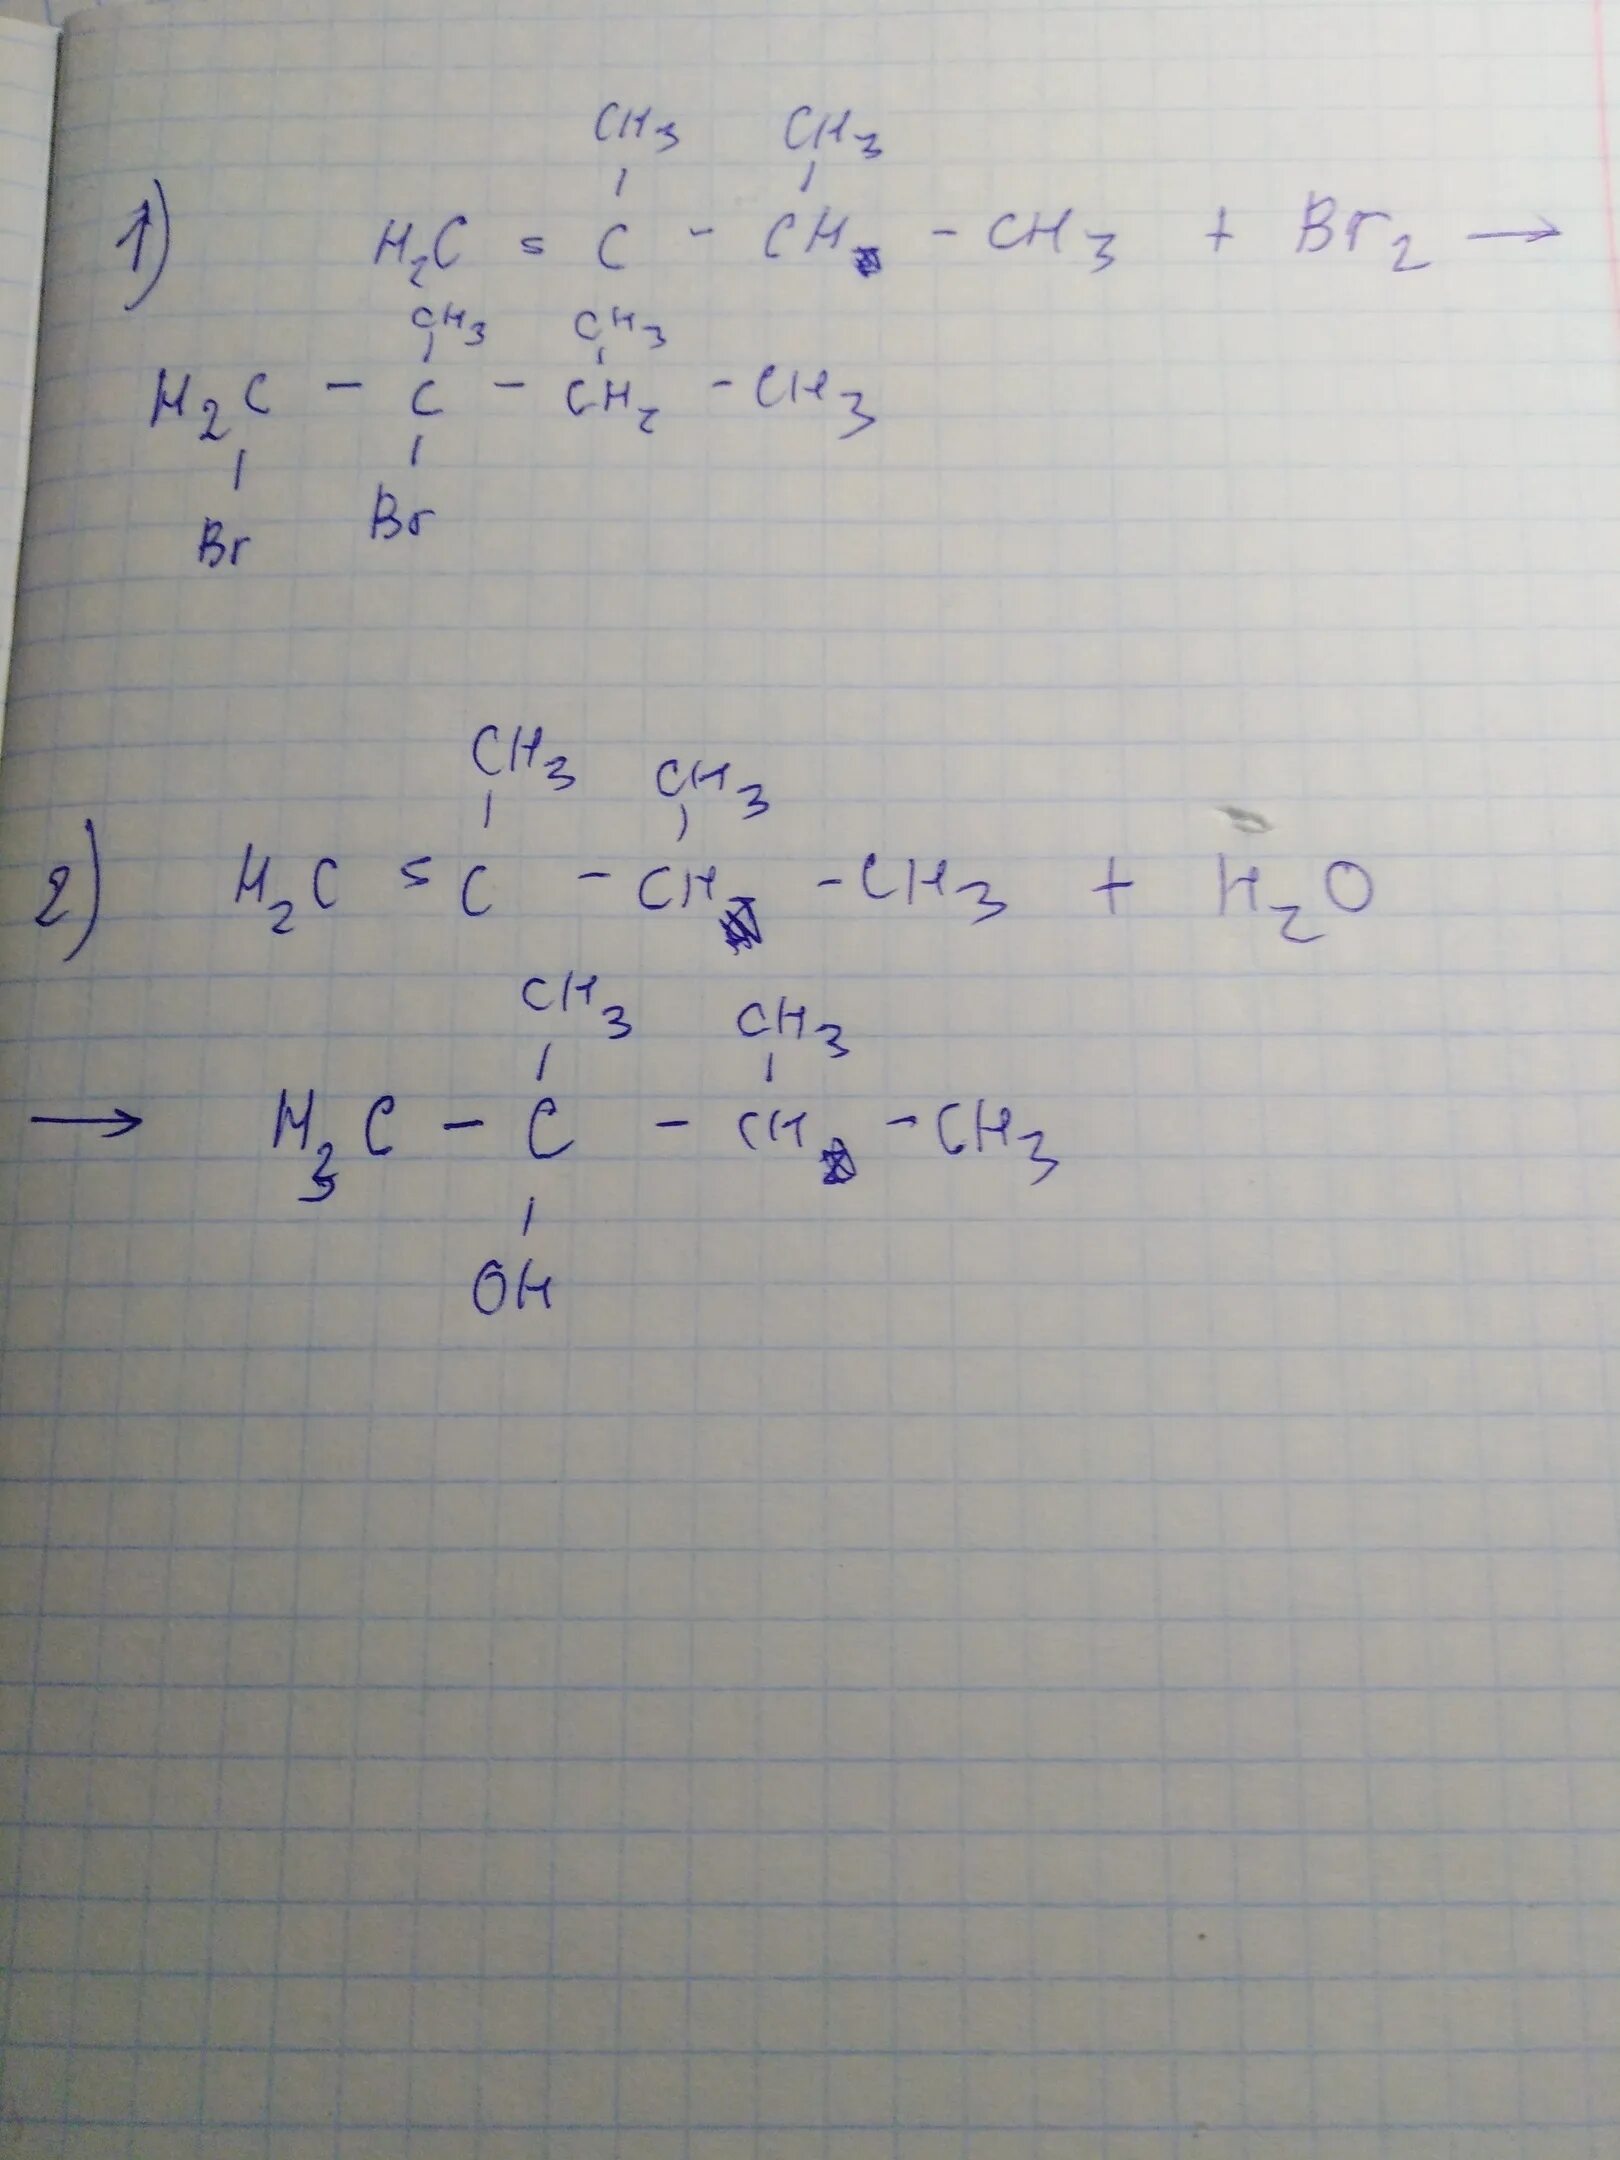 CH3 CH3
1) H2C = C - CH - CH3 + Br2 →
CH3 CH3
H2C - C - CH2 - CH3
Br Br
CH3 CH3
2) H2C = C - CH - CH3 + H2O
CH3 CH3
→ H3C - C - CH - CH3
OH